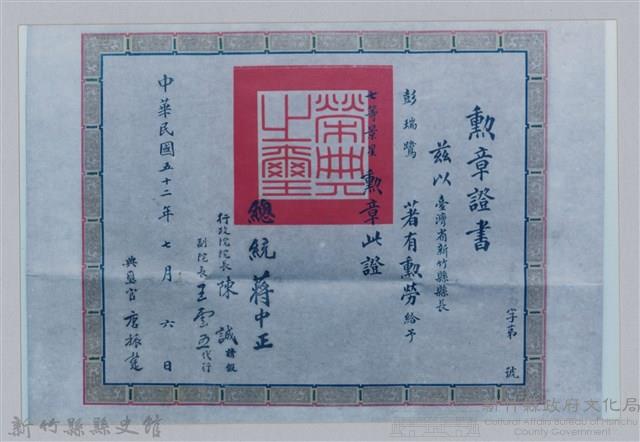 勲章證書
字第 號
茲以臺灣省新竹縣縣長
彭瑞鷺 著有勲勞給予
七等景星勲章此證
榮典之璽
總統 蔣中正
行政院院長 陳誠 請假
副院長 王雲五 代行
中華民國五十二年七月六日
典璽官 唐振楚
新竹縣縣史館
新竹縣政府文化局
Cultural Affairs Bureau of Hsinchu
County Government